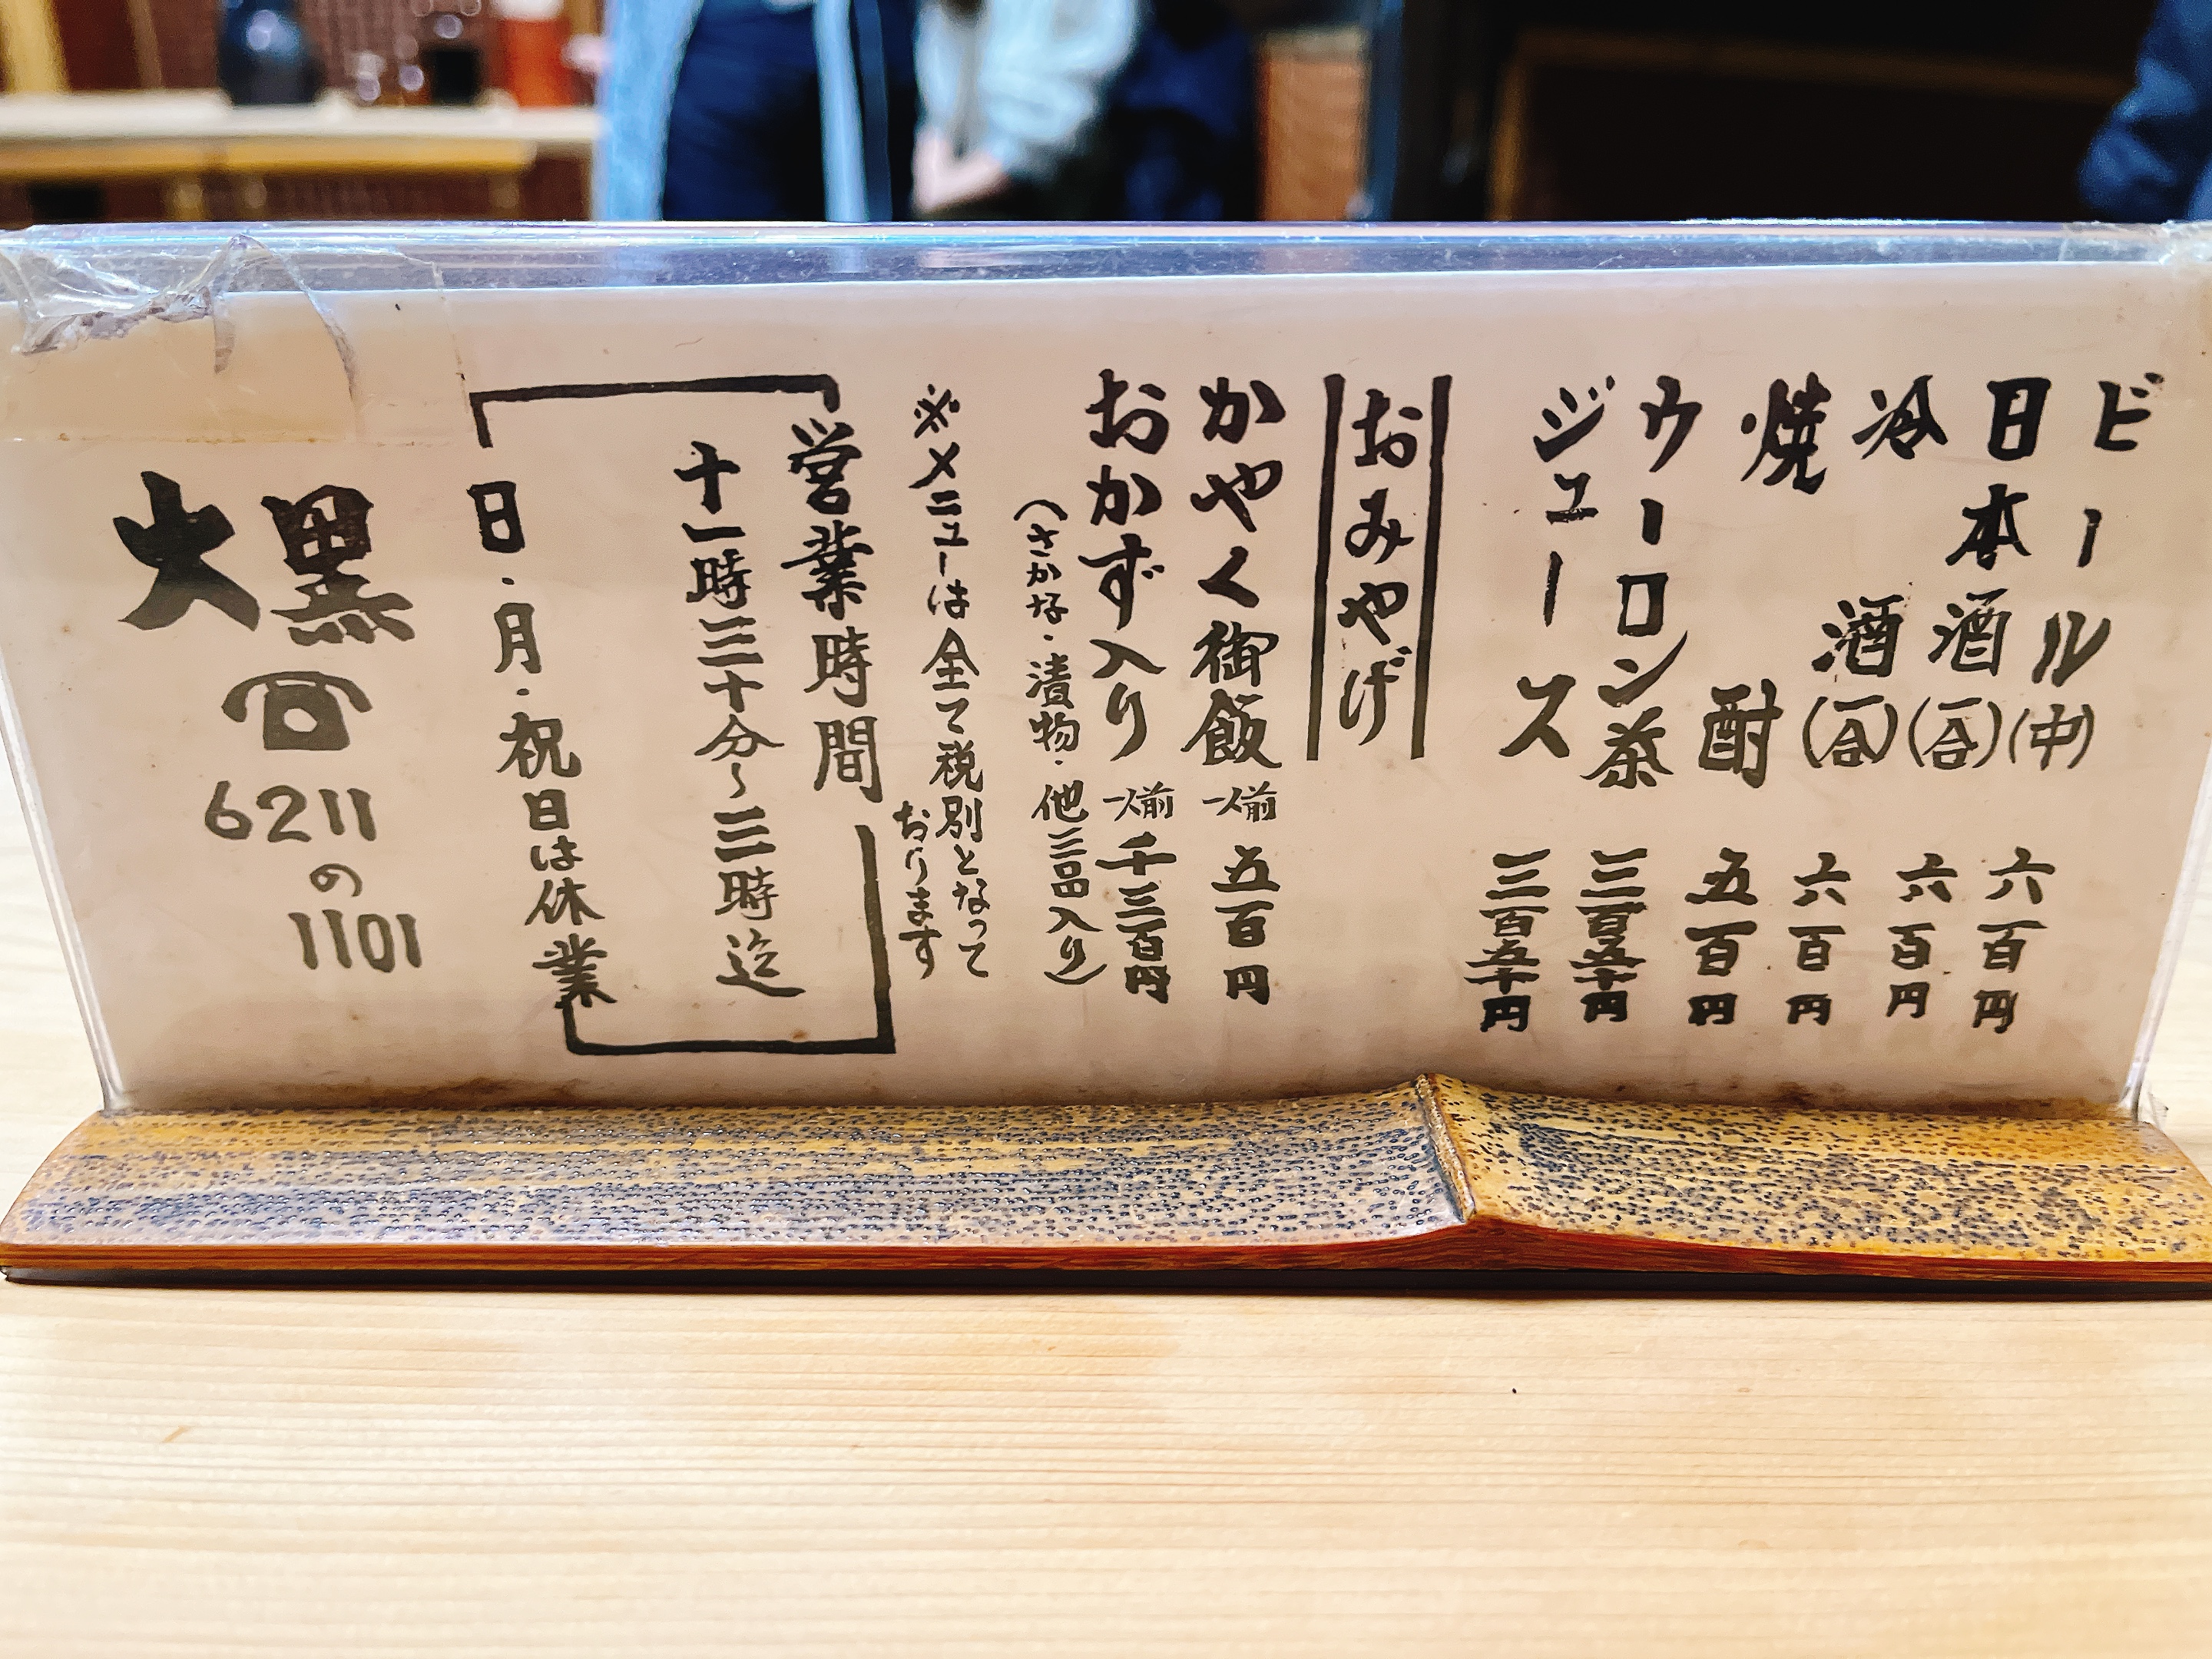 ビール(中) 六百円
日本酒(一合) 六百円
冷酒(一合) 六百円
焼酎 五百円
ウーロン茶 三百五十円
ジュース 三百五十円
おみやげ
かやく御飯 一人前 五百円
おかず入り 一人前 千三百円
(さかな・漬物・他三品入り)
※メニューは全て税別となって
おります
営業時間
十一時三十分〜三時迄
日・月・祝日は休業
大黒
6211
の
1101